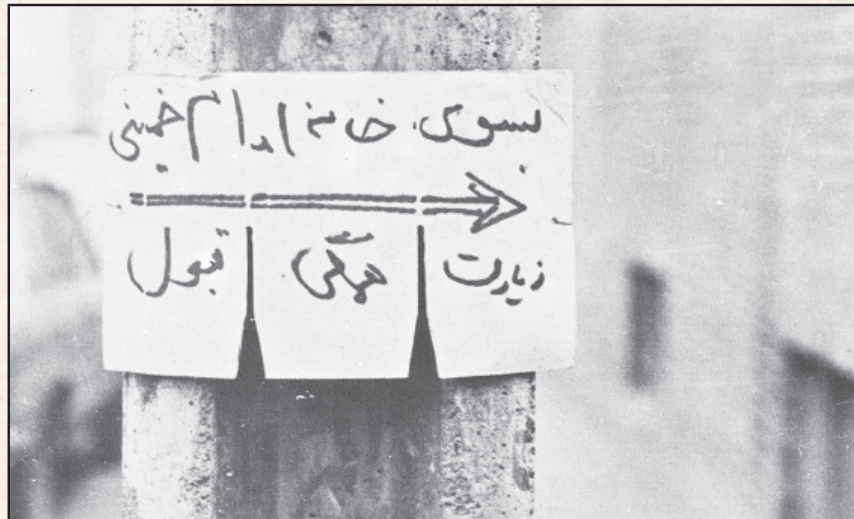 بسوی خانه امام خمینی
زیارت همگی قبول